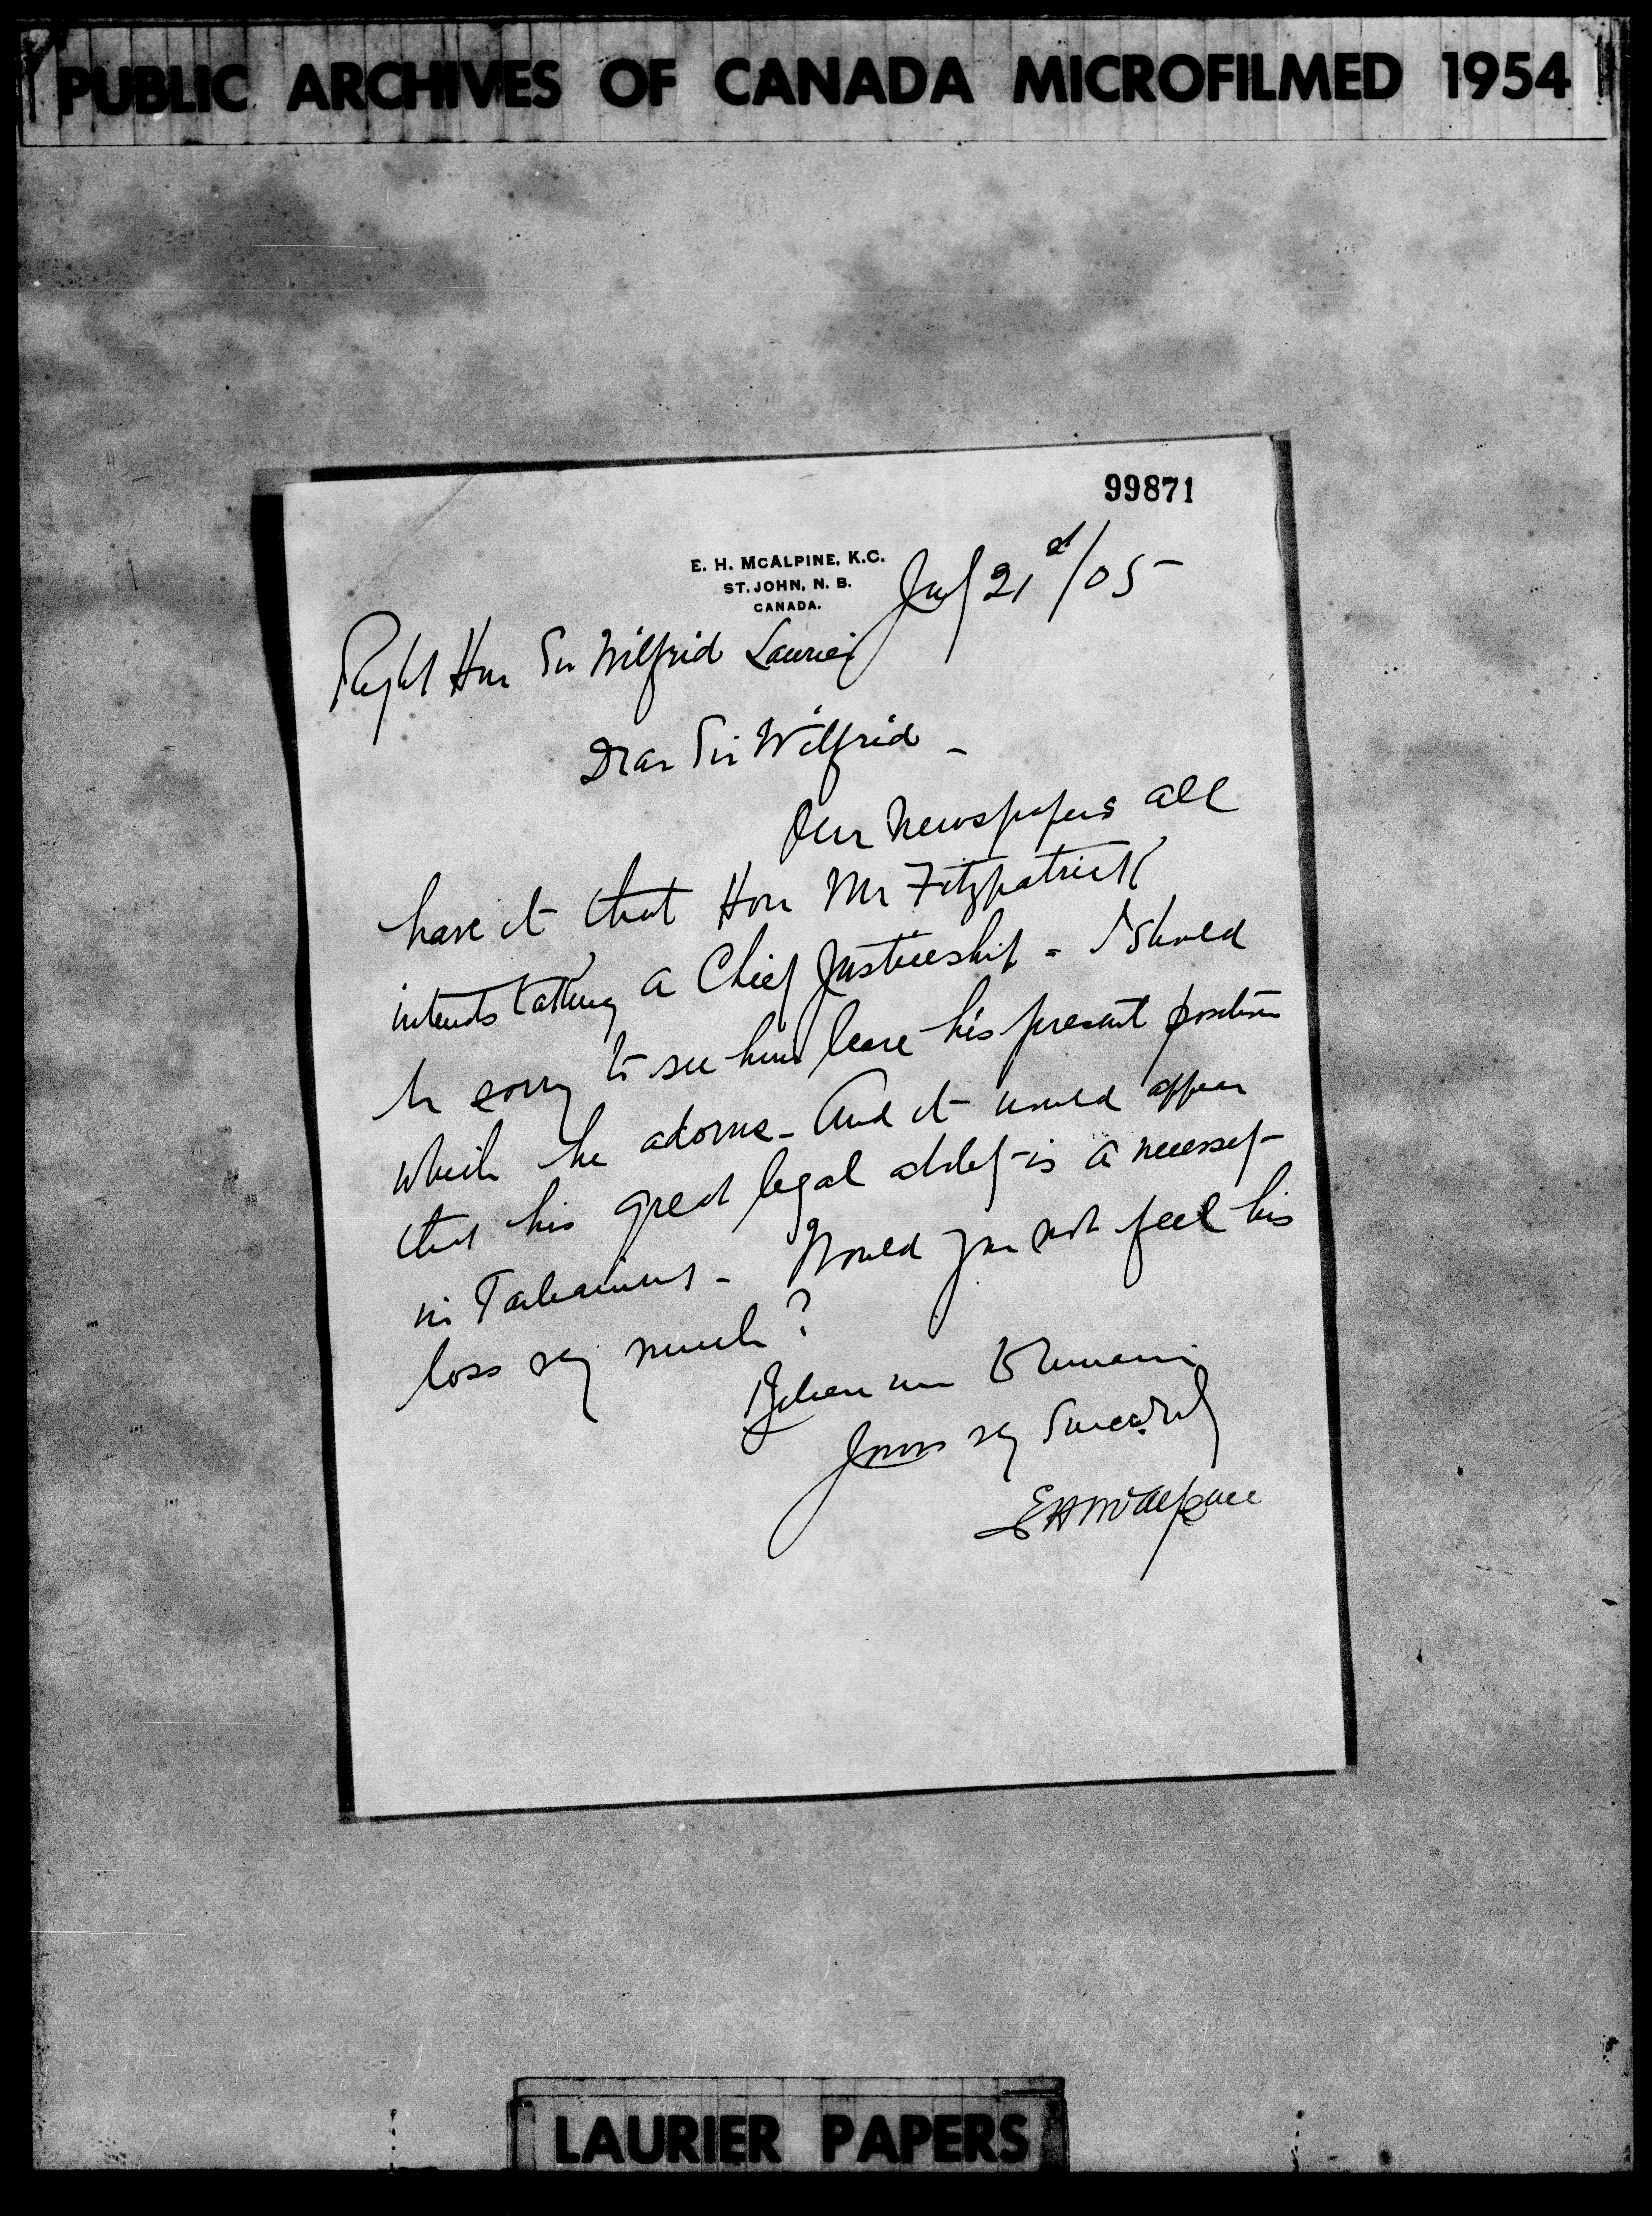 PUBLIC ARCHIVES OF CANADA MICROFILMED 1954
99871
E. H. MCALPINE, K.C.
ST. JOHN, N. B.
CANADA.
21st/05
Right Hon Sir Wilfrid Laurier
Dear Sir Wilfrid -
Our Newspapers all
have it that Hon Mr Fitzpatrick
intends taking a Chief Justiceship - I should
be sorry to see him leave his present position
which he adorns - And it would appear
that his great legal ability is a necessity
in Parliament - Would you not feel his
loss very much?
Believe me to remain
Yours very Sincerely
E H McAlpine
LAURIER PAPERS